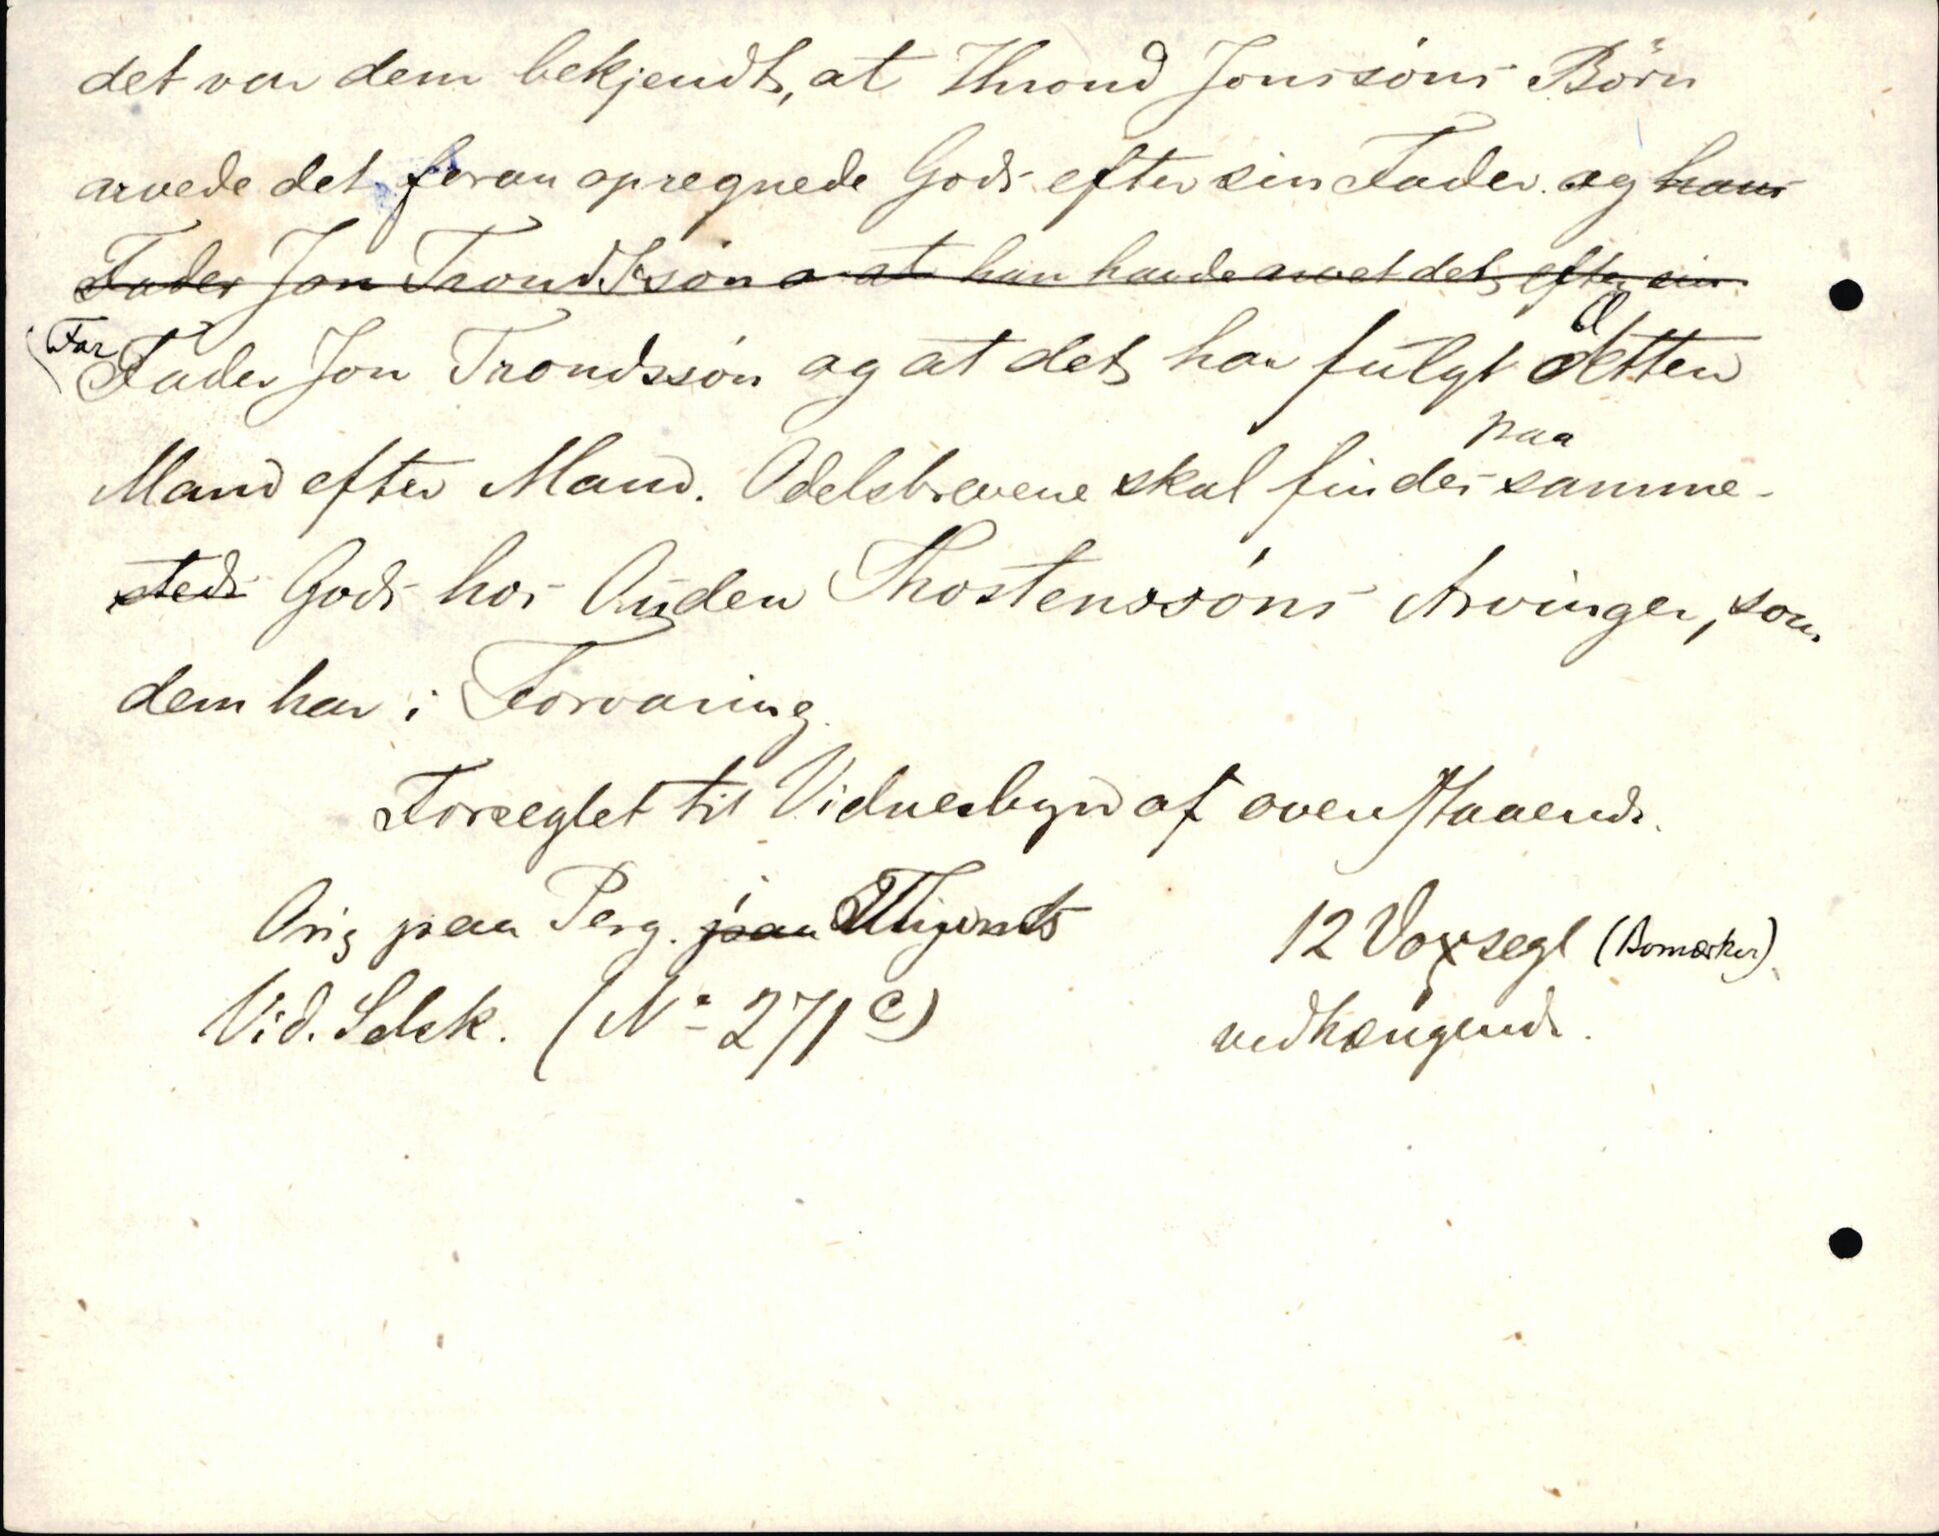 det var dem bekjendt, at Thrond Jonssöns Börn
arvede det foran opregnede Gods efter sin Fader og hans
Fader Jon Trondssön at han havde arvet det efter sin
Far
Fader Jon Trondssön og at det har fulgt Ætten
paa
Mand efter Mand. Odelsbrevene skal findes samme-
steds Gods hos Auden Thostenssöns Arvinger, som
dem har i Forvaring.
Forseglet til Vidnesbyrd af ovenstaaende.
Orig paa Perg. paa i
12 Voxsegl (Bomærker)
Vid. Selsk. (No 271 c)
vedhængende.